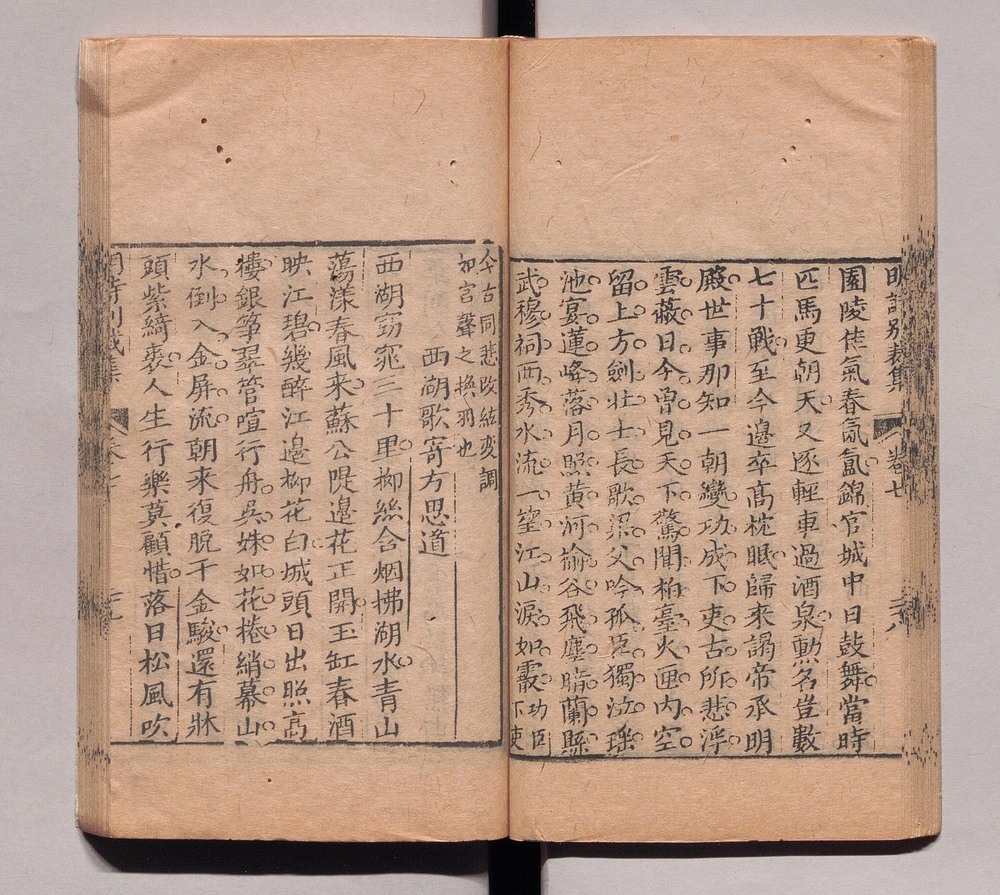 明詩別裁集 卷七
園陵佳氣春氤氳錦官城中日鼓舞當時
匹馬更朝天又逐輕車過酒泉勳名豈數
七十戰至今邊卒高枕眠歸來謁帝承明
殿世事那知一朝變功成下吏古所悲浮
雲蔽日今曾見天下驚聞柏臺火匣內空
留上方劍壯士長歌梁父吟孤臣獨泣瑤
池宴蓮峰落月照黃河揄谷飛塵臈蘭縣
武穆祠西秀水流一望江山淚如霰功臣下吏
今古同悲改絃变調
如宮聲之換羽也
西湖歌寄方思道
西湖窈窕三十里柳絲含烟拂湖水青山
蕩漾春風来蘇公隄邊花正開玉缸春酒
映江碧幾醉江邊柳花白城頭日出照高
樓銀箏翠管喧行舟吳姝如花捲綃幕山
水倒入金屏流朝來復脫千金駿還有牀
頭紫綺裘人生行樂莫顧惜落日松風吹
明詩別裁集 卷七